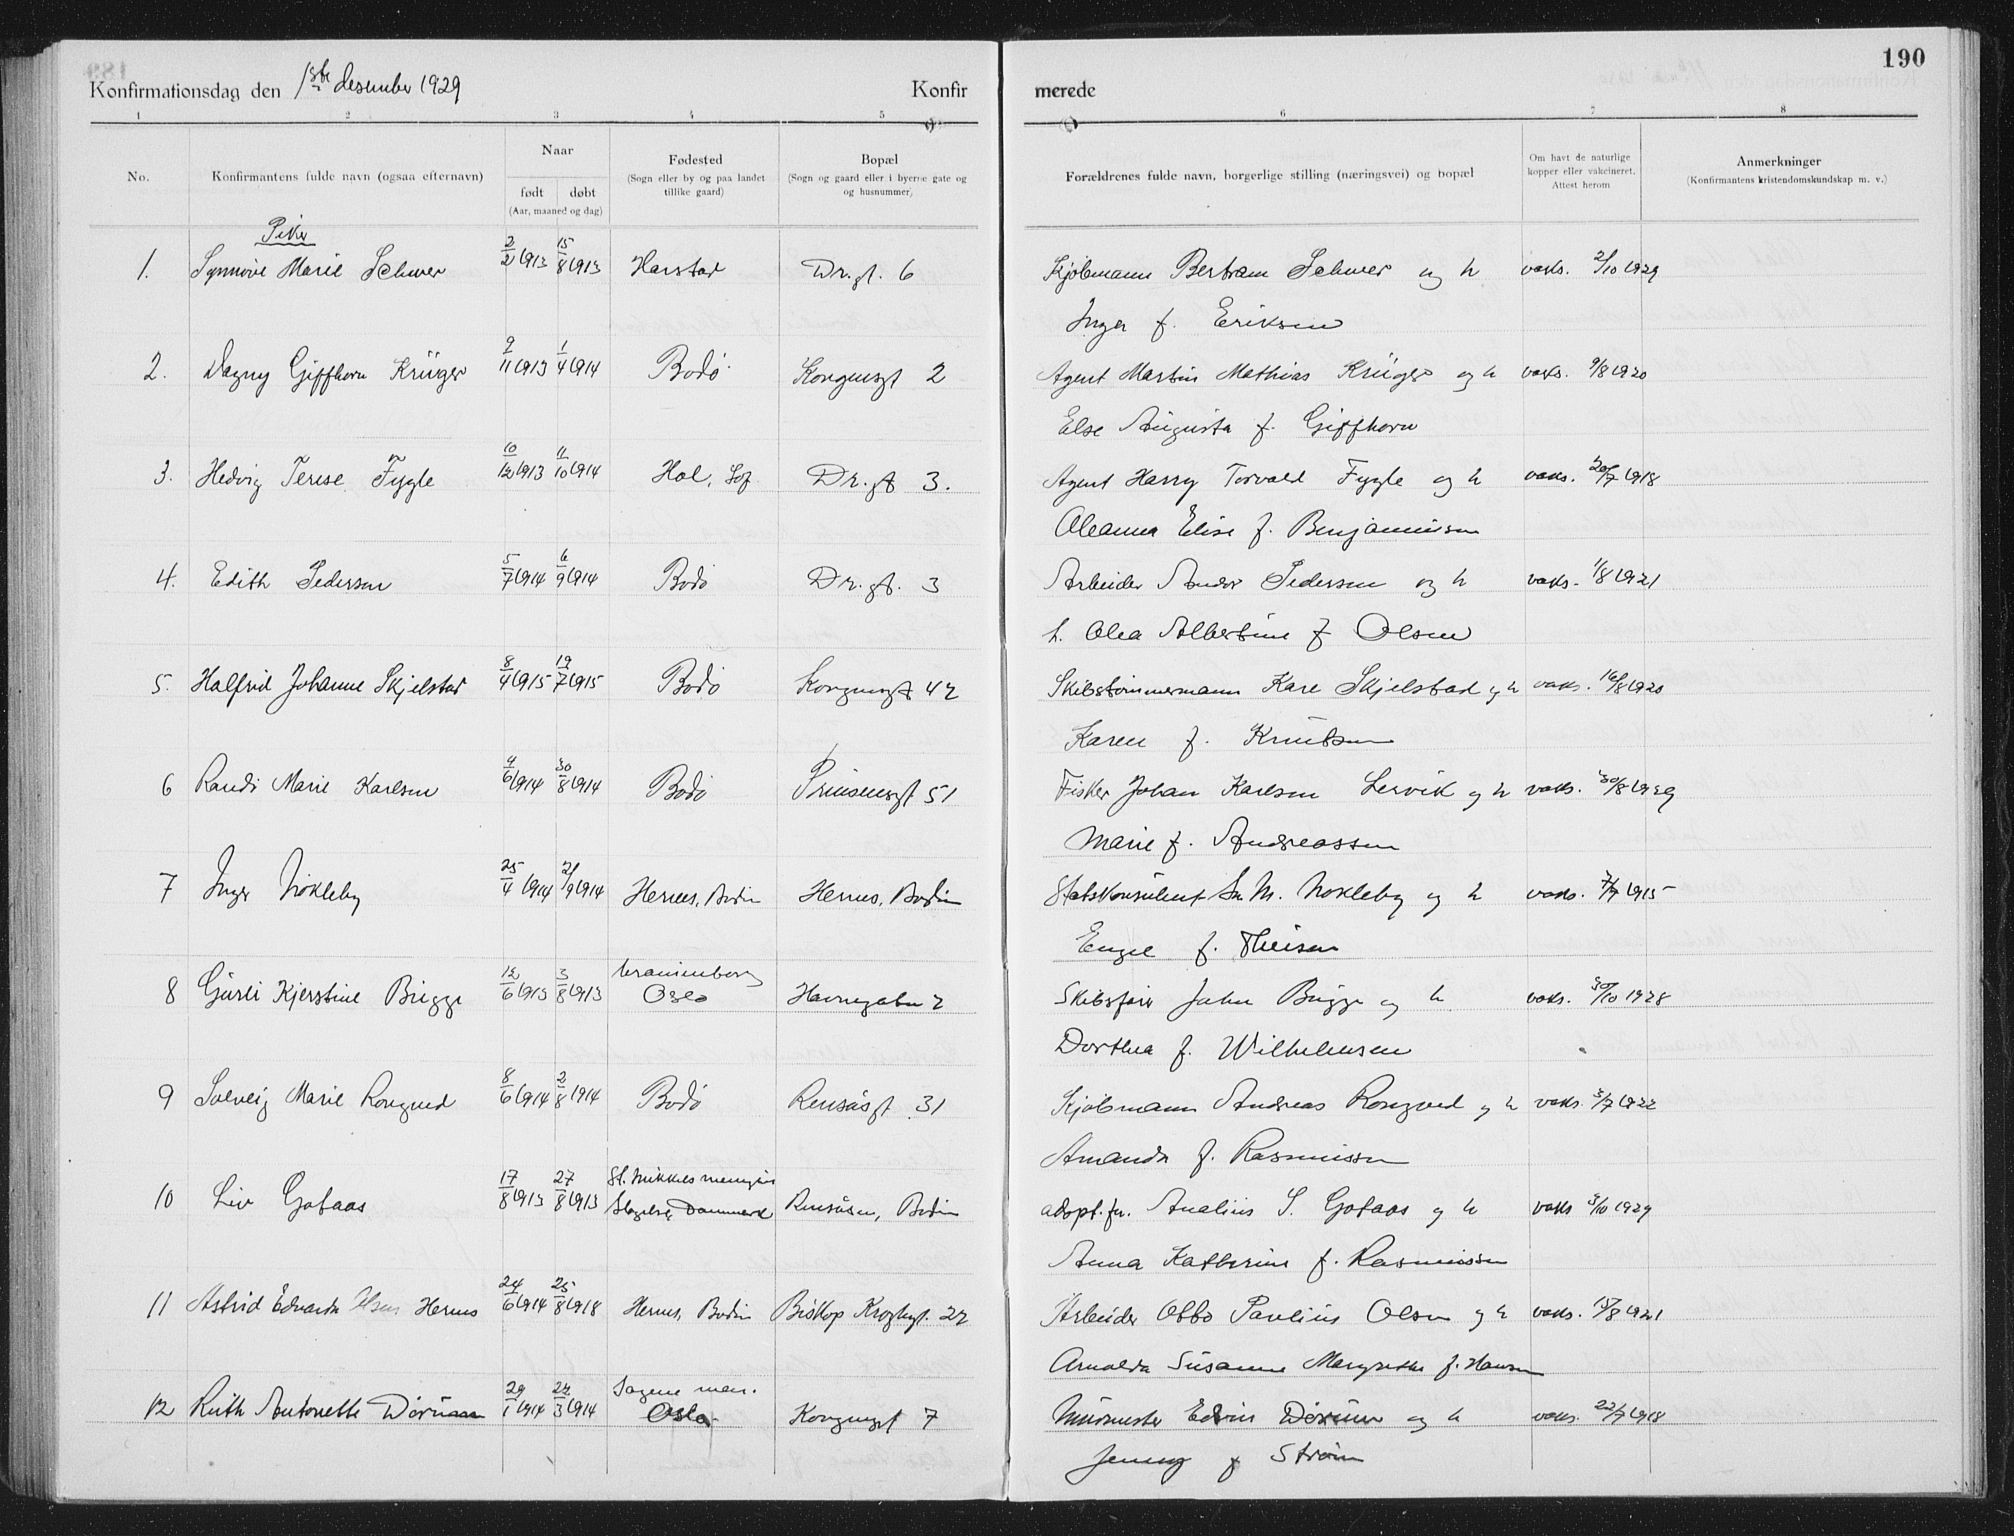 190
Konfirmationsdag den 1ste desember 1929 Konfir merede
1 2 3 4 5 6 7 8
No. Konfirmantens fulde navn (ogsaa efternavn) Naar født døbt (Aar, maaned og dag) Fødested (Sogn eller by og paa landet tillike gaard) Bopæl (Sogn og gaard eller i byerne gate og og husnummer) Forældrenes fulde navn, borgerlige stilling (næringsvei) og bopæl Om havt de naturlige kopper eller vakcineret. Attest herom Anmerkninger (Konfirmantens kristendomskundskap m. v.)
Piker
1. Synnøve Marie 2/2 1913 15/8 1913 Harstad Dr.gt. 6 Kjøbmann Bertram og h vaks. 2/10 1929
Inga f. Eriksen
2. Dagny Giffhorn Krüger 9/11 1913 1/4 1914 Bodø Kongensgt 2 Agent Martin Mathias Krüger og h vaks. 9/8 1920
Else Augusta f. Giffhorn
3. Hedvig Terese Fygle 10/12 1913 11/10 1914 Hol, Lof Dr.gt 3. Agent Harry Torvald Fygle og h vaks. 20/7 1918
Oleanna Elise f. Benjaminsen
4. Edith Pedersen 5/7 1914 6/9 1914 Bodø Dr.gt. 3 Arbeider Andor Pedersen og h vaks. 1/8 1921
h. Olea Albertine f Olsen
5. Halfrid Johanne Skjelstad 8/4 1915 19/7 1915 Bodø Kongensgt 42 Skibstømmermann Kare Skjelstad og h vaks. 16/8 1920
Karen f. Knutsen
6 Randi Marie Karlsen 4/6 1914 30/8 1914 Bodø Prinsensgt 51 Fisker Johan Karlsen Lervik og h vaks. 30/8 1929
Marie f. Andreassen
7 Inger Nøkleby 25/4 1914 21/9 1914 Hernes, Bodin Hernes, Bodin Statskonsulent M. Nøkleby og h vaks. 7/7 1915
Engel f. Theisen
8 Gurli Kjerstine Brigge 12/6 1913 3/8 1913 Uranienborg Oslo Havnegaten 2 Skibsfører John Brigge og h vaks. 30/10 1928
Dorthea f. Wilhelmsen
9 Solveig Marie Rongved 8/6 1914 2/8 1914 Bodø Rensåsgt 31 Kjøbmann Andreas Rongved og h vaks. 3/7 1922
Amanda f. Rasmussen
10 Liv Gotaas 17/8 1913 27/8 1913 St. Mikkels menighet Slagelse, Danmark Rensåsen, Bodin adopt.for. Analius S. Gotaas og h vaks 3/10 1929
Anna Kathrine f. Rasmussen
11 Astrid Edvarda Olsen Hernes 24/6 1914 25/8 1918 Hernes, Bodin Biskop Kroghsgt. 22 Arbeider Otto Paulius Olsen og h vaks. 15/8 1921
Arnolda Susanne Margrethe f. Hansen
12 Ruth Antonette Dørum 29/1 1914 22/3 1914 Sagene men. Oslo Kongensgt 7 Murmester Edvin Dørum og h vaks. 22/7 1918
Jenny f Strøm